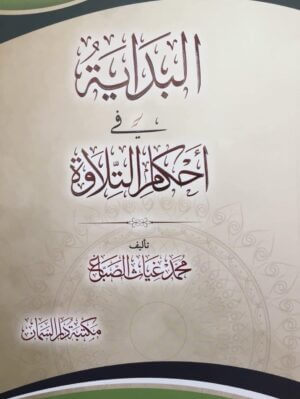 البداية
في
أحكام التلاوة
تأليف
محمد غياث الصباغ
مكتبة دار السمان